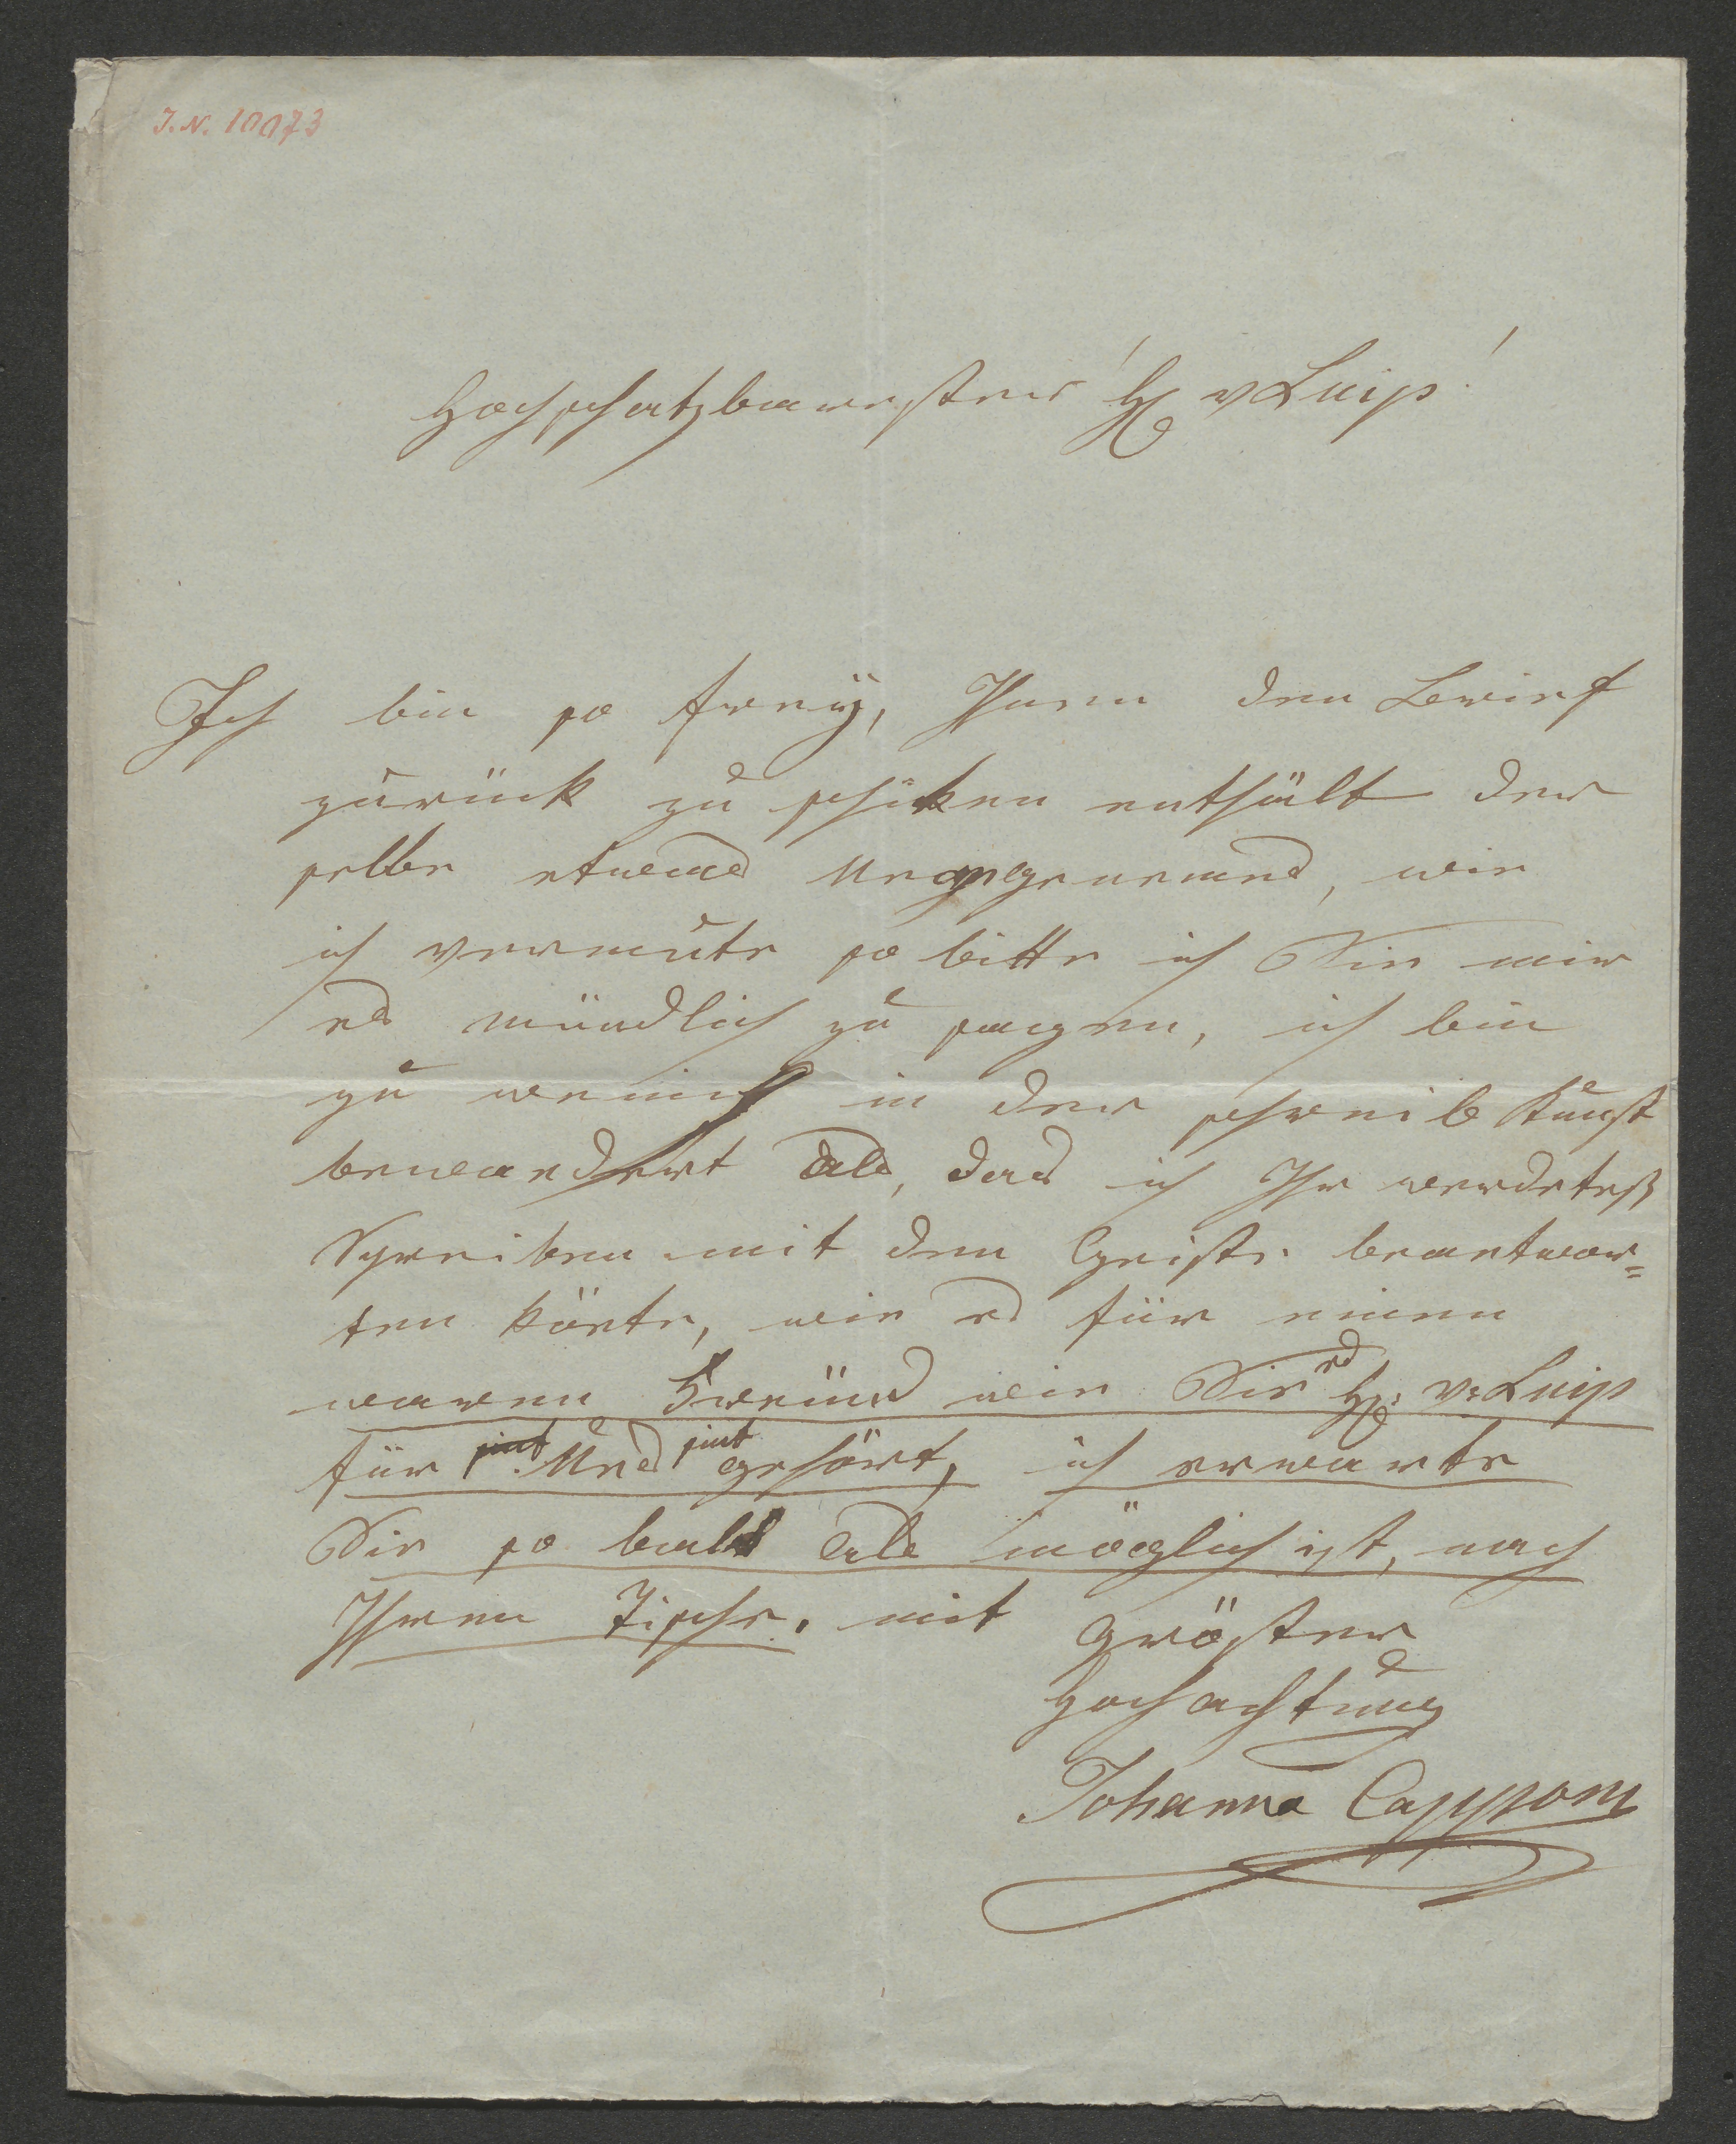 I.N. 10073
Hochschatzbaarester! H v Luib!
Ich bin so freÿ, Ihnen den Brief
zurück zu schiken enthält der
selbe etwas Unangenemes, wie
ich vermute so bitte ich Sie mir
es mündlich zu sagen, ich bin
zu wenich in der schreib Kunst
bewandert als, das ich Ihr werdeteß
Schreiben mit den Geiste beantwor=
ten könte, wie es für einen
waren Freünd wie Sie es H: v: Luib
für Uns sint gehört, ich erwarte
Sie so bald als möglich ist, nach
Ihren Tische. mit gröster
Hochachtung
Johanna Capponi